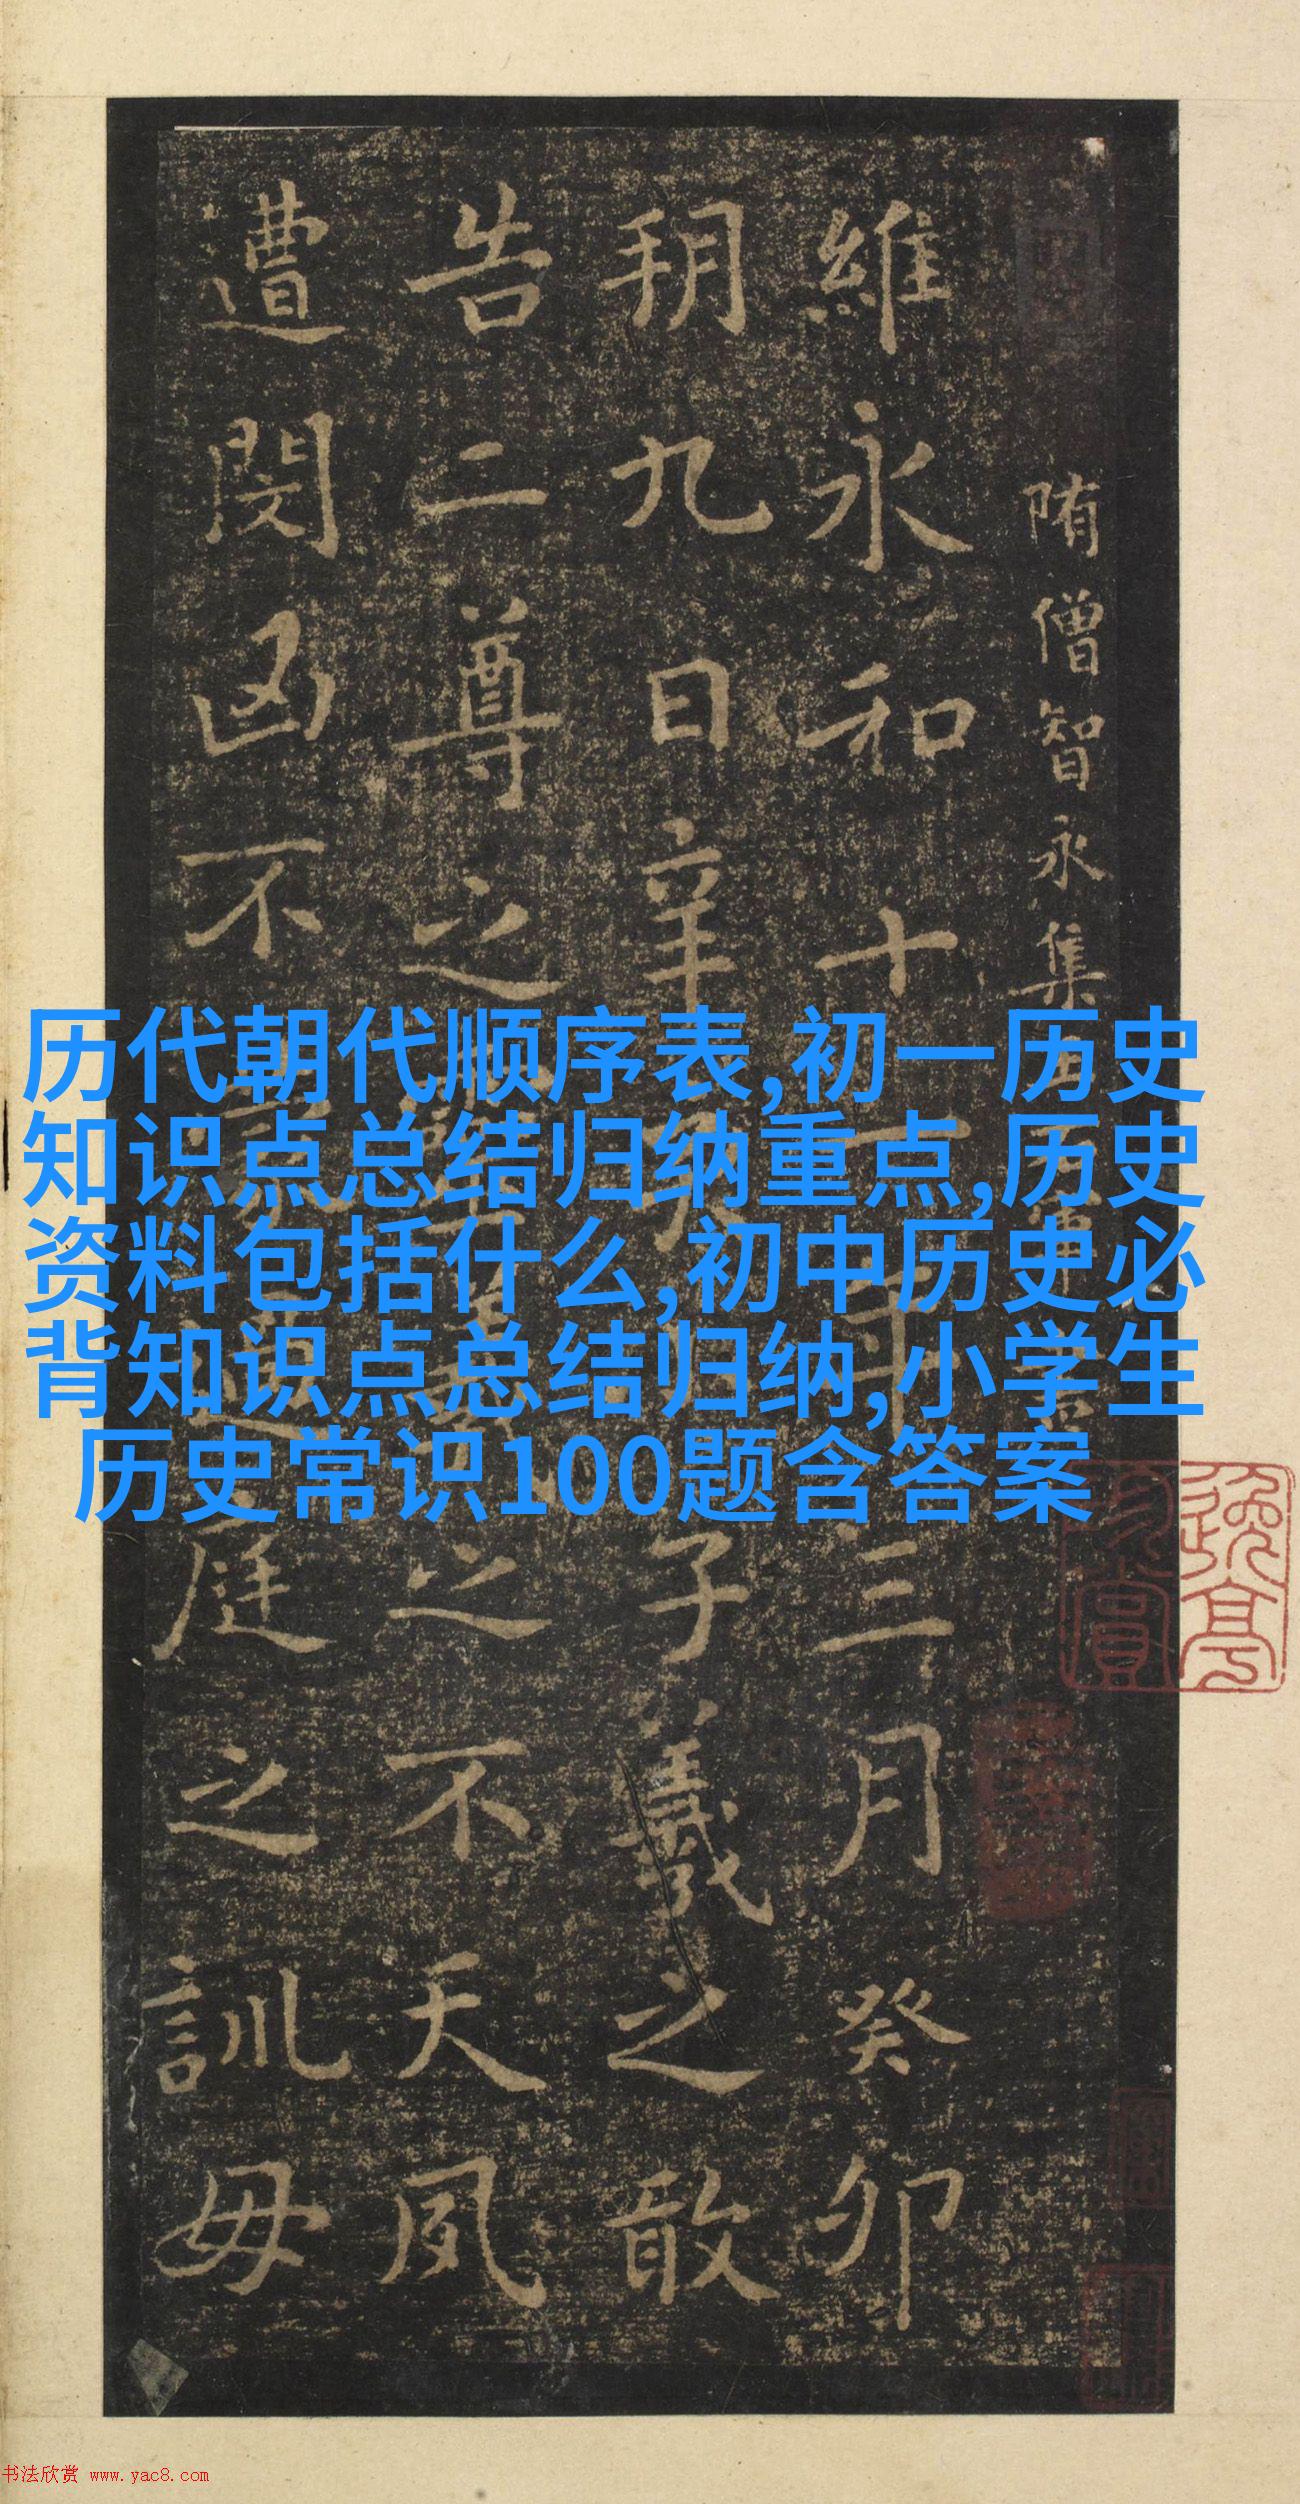 隋僧智永集
維永和十一年三月癸卯
朔九日辛子羲之敢
告二尊之之不天夙
遭閔凶不庭之訓毋
历代朝代顺序表,初一历史
知识点总结归纳重点,历史
资料包括什么,初中历史必
背知识点总结归纳,小学生
历史常识100题含答案
书法欣赏 www.yac8.com